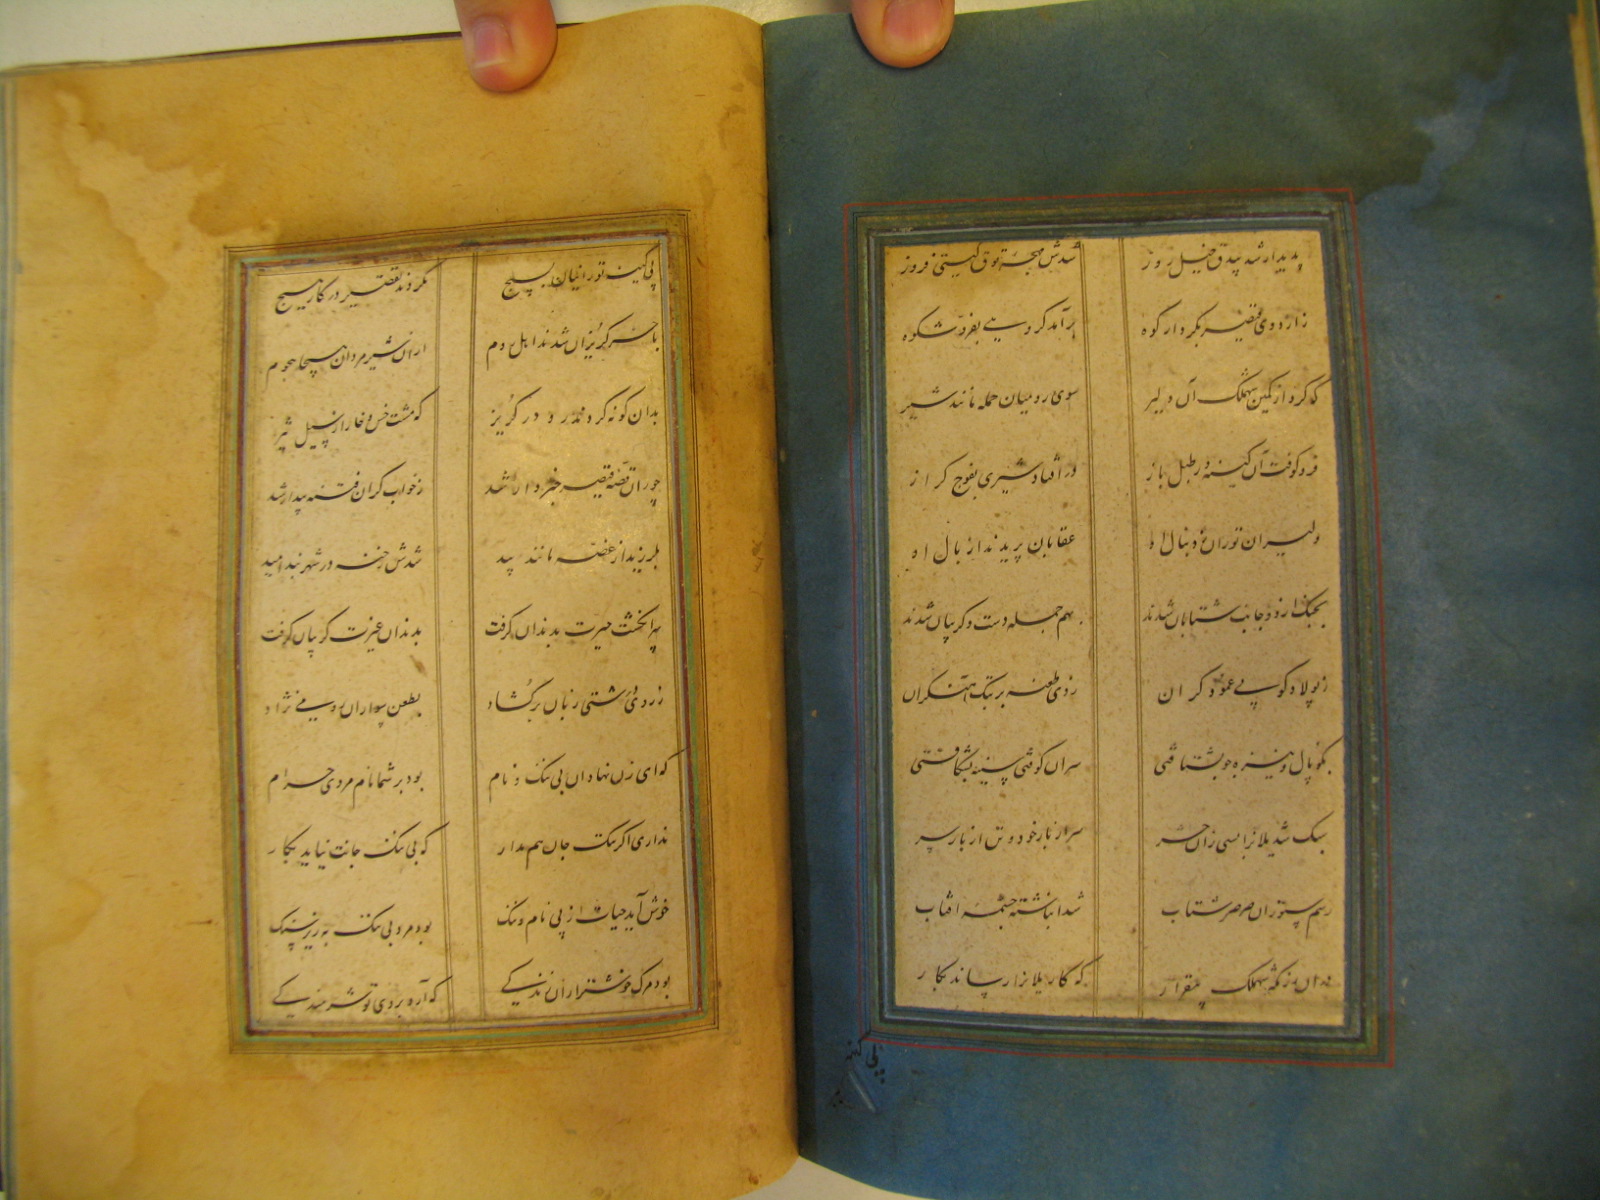 پدیدار شد بیدق خیل روز شدش مهجهٔ توق گیتی فروز
ز اردوی قیصر بکردار کوه برآمد کروهی بفر و شکوه
که کرد از کمین بهلک آن دلیر سوی رومیان حمله مانند شیر
فرو کوفت آن کینه ور طبل باز در افتاد شیری بفوج کراز
دلیران توران ز دنبال اه عقابان پریدند از بال اه
بجنک از دو جانب شتابان شدند بهم جمله دست و کریبان شدند
ز پولاد کوپی عمود کران زدی طعنه بر پتک آهنکران
بکوپال و نیزه چو بشتافتی سران کوفتی سینه بشکافتی
سبک شد یلانرا بسی زان سر از بار خود و تن از بار سر
ز سم ستوران صرصر شتاب شد انباشته چشمهٔ افتاب
بهلک بیقرار که کار یلانرا رساند بکار
پی کینه
پی کینه تورانیان بسیج نکردند تقصیر در کار هیچ
کریزان شدند اهل روم ازان شیرمردان هیجا هجوم
بدان کونه کردند رو در کریز که مشت خس و خار از سیل تیز
چو زان قصه قیصر خبردار شد ز خواب کران فتنه بیدار شد
بلرزید از غصه مانند بید شدش رخنه در شهربند امید
سرانکشت حیرت بدندان کرفت بدندان عبرت کریبان کرفت
ز روی درشتی زبان برکشاد بطعن سواران رومی نژاد
که ای زن نهادان بی ننک و نام بود بر شما نام مردی حرام
نداری اکر ننک جان هم مدار که بی ننک جانت نیاید بکار
خوش آید حیات از پی نام و ننک بود مرد بی ننک به زیر سنک
بود مرک خوشتر ازان زندکی که آرد بروی تو شرمندکی